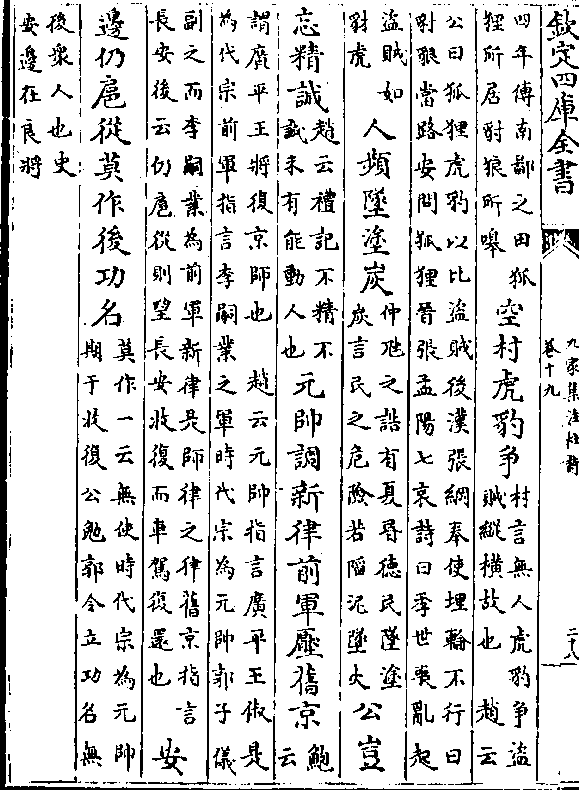 欽定四庫全書
九家集注杜詩
卷十九
二十八
四年傳南鄙之田狐
狸所居豺狼所嘷
空村虎豹爭
村言無人虎豹爭盜
賊縱橫故也 趙云
公曰狐狸虎豹以比盜賊後漢張綱奉使埋輪不行曰
豺狼當路安問狐狸晉張孟陽七哀詩曰季世喪亂起
盜賊如
豺虎
人頻墜塗炭
仲虺之誥有夏昏德民墜塗
炭言民之危險若陷泥墜火
公豈
忘精誠
趙云禮記不精不
誠未有能動人也
元帥調新律前軍壓舊京
鮑
云
謂廣平王將復京師也 趙云元帥指言廣平王俶是
為代宗前軍指言李嗣業之軍時代宗為元帥郭子儀
副之而李嗣業為前軍新律是師律之律舊京指言
長安後云仍扈從則望長安收復而車駕復還也
安
邊仍扈從莫作後功名
莫作一云無使時代宗為元帥
期于收復公勉郭令立功名無
後衆人也史
安邊在良將